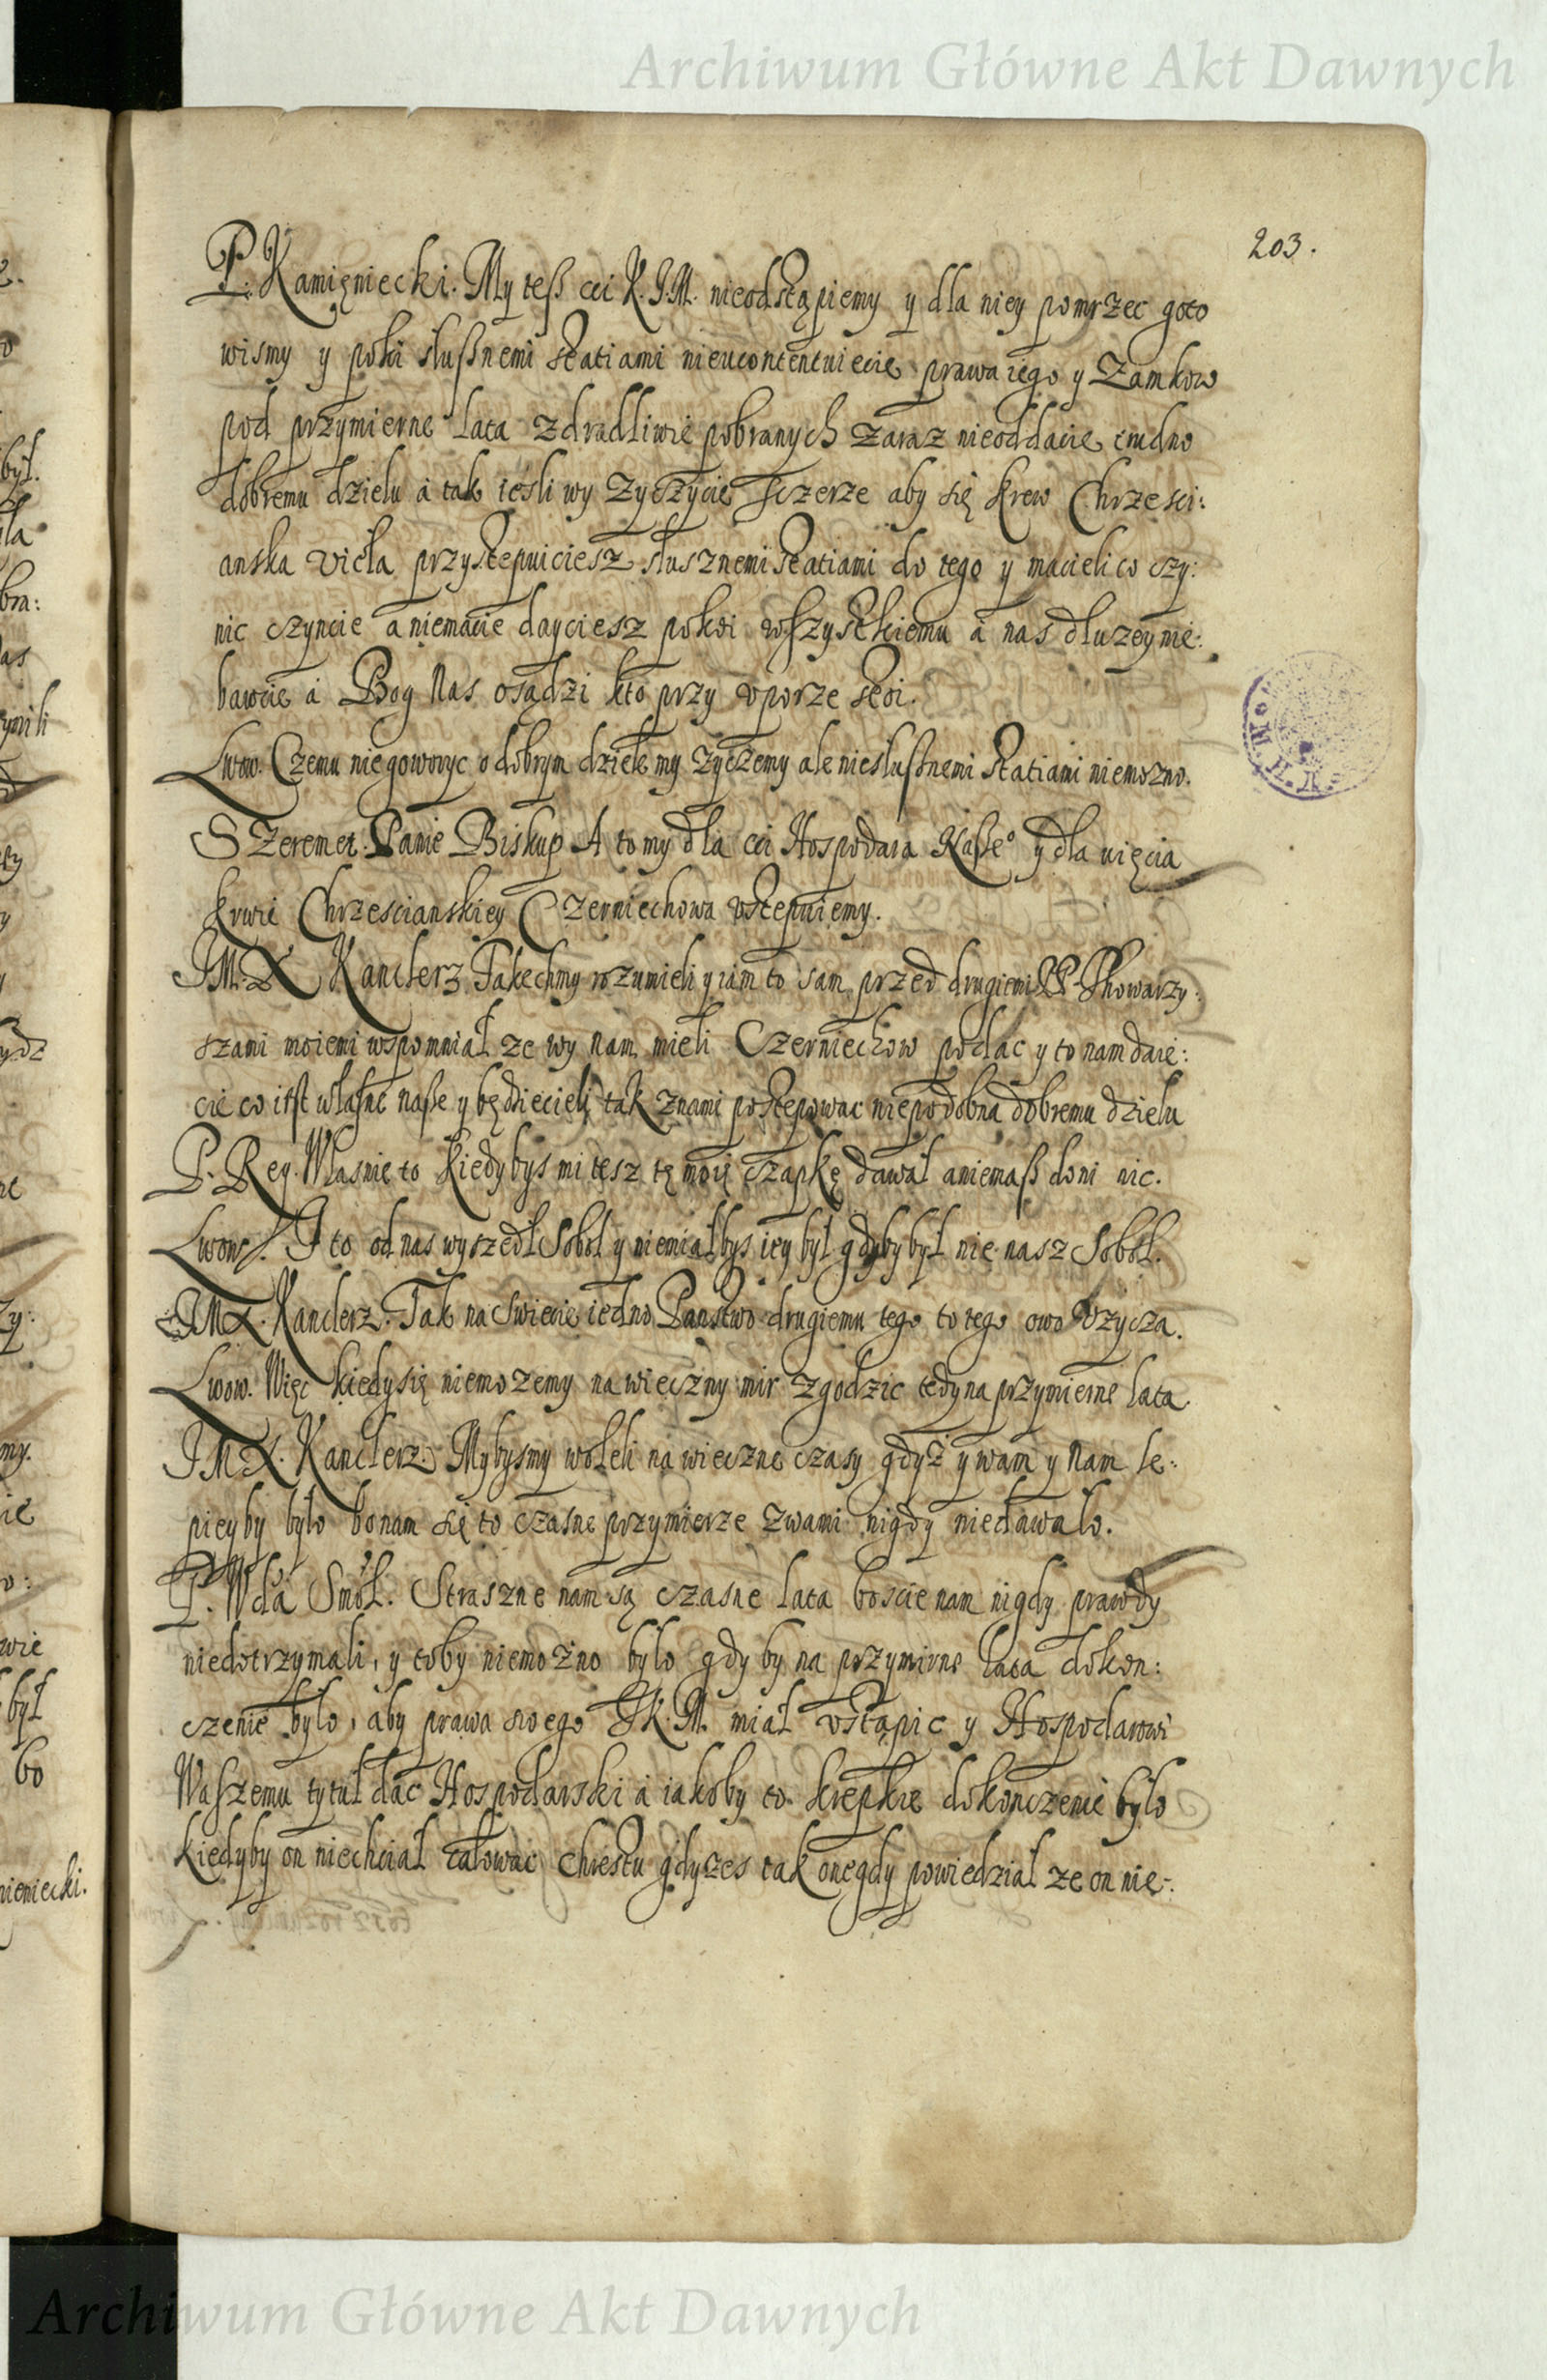 Archiwum Główne Akt Dawnych
203.
P. Kamięniecki. My teß czi K.J.M. nieodstąpiemy y dla niey pomrzec goto
wismy y poki slußnemi statiami nieucontentuiecie prawa iego y Zamkow
pod przymierne lata zdradliwie pobranych zaraz nieoddacie trudno
dobremu dzielu á tak iesli wy zyczycie sczerze aby się krew Chrzesci:
anska vieła przystepuiciesz słusznemi statiami do tego y macieli co czy:
nic czyncie a niemacie dayciesz pokoi wszystkiemu á nas dłuzey nie:
bawcie á Bog Nas osądzi kto przy vporze stoi.
Lwow. Czemu niegoworyc o dobrym dziele my zyczemy ale niesłußnemi statiami niemozno.
Szeremet. Panie Biskup A to my dla czi Hospodara Naße° y dla uięcia
krwie Chrzescianskiey Czerniechowa vstepuiemy.
JM. X Kanclerz. Takechmy rozumieli y iam to sam przed drugiemi PP. Thowarzy:
szami moiemi wspomniał ze wy nam mieli Czerniechow podac y to nam daie:
cie co iest własne naße y będziecieli tak znami postepowac niepodobna dobremu dzielu
P. Rey. Własnie to kiedybys mi tesz tę moię czapkę dawał a niemaß do ni nic.
Lwow. I to od nas wyszedł Sobol y niemiałbys iey był gdyby był nie nasz Sobol.
JMX. Kanclerz. Tak na swiecie iedno Panstwo drugiemu tego to tego owo vzycza.
Lwow. Więc kiedy się niemozemy na wieczny mir zgodzic tedy na przymierne lata.
JMX. Kanclerz. Mybysmy woleli na wieczne czasy gdyż y wam y Nam le:
pieyby było bo nam się to czasne przymierze zwami nigdy niedawało.
P. Wda Smol. Straszne nam są czasne lata boscie nam nigdy prawdy
niedotrzymali, y toby niemożno było gdy by na przymirne lata dokon:
czenie było, aby prawa swego JK.M. miał vstąpic y Hospodarowi
Waszemu tytuł dac Hospodarski á iakoby to krepkie dokonczenie było
kiedyby on niechciał całowac chrestu gdyzes tak onegdy powiedział ze on nie:
Archiwum Główne Akt Dawnych